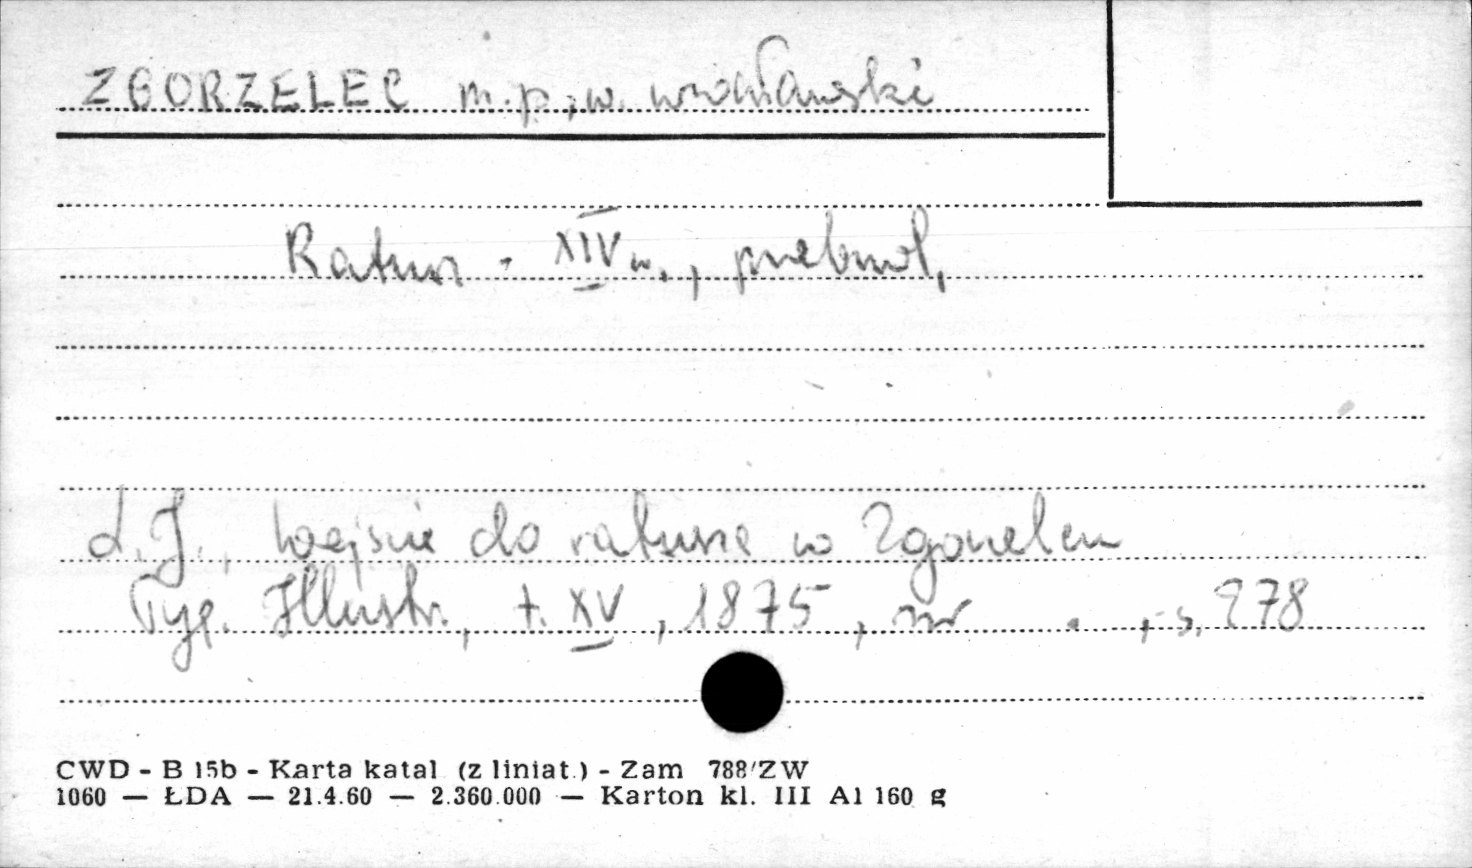 ZGORZELEC m.p., w. wrocławski
Ratusz - XIV w., przebud.
L.J., Wejście do ratusza w Zgorzelcu
Tyg. Illustr., t. XV, 1875, nr . , s. 278
CWD - B 15b - Karta katal (z liniat.) - Zam 788/ZW
1060 — ŁDA — 21.4.60 — 2.360.000 — Karton kl. III A1 160 g